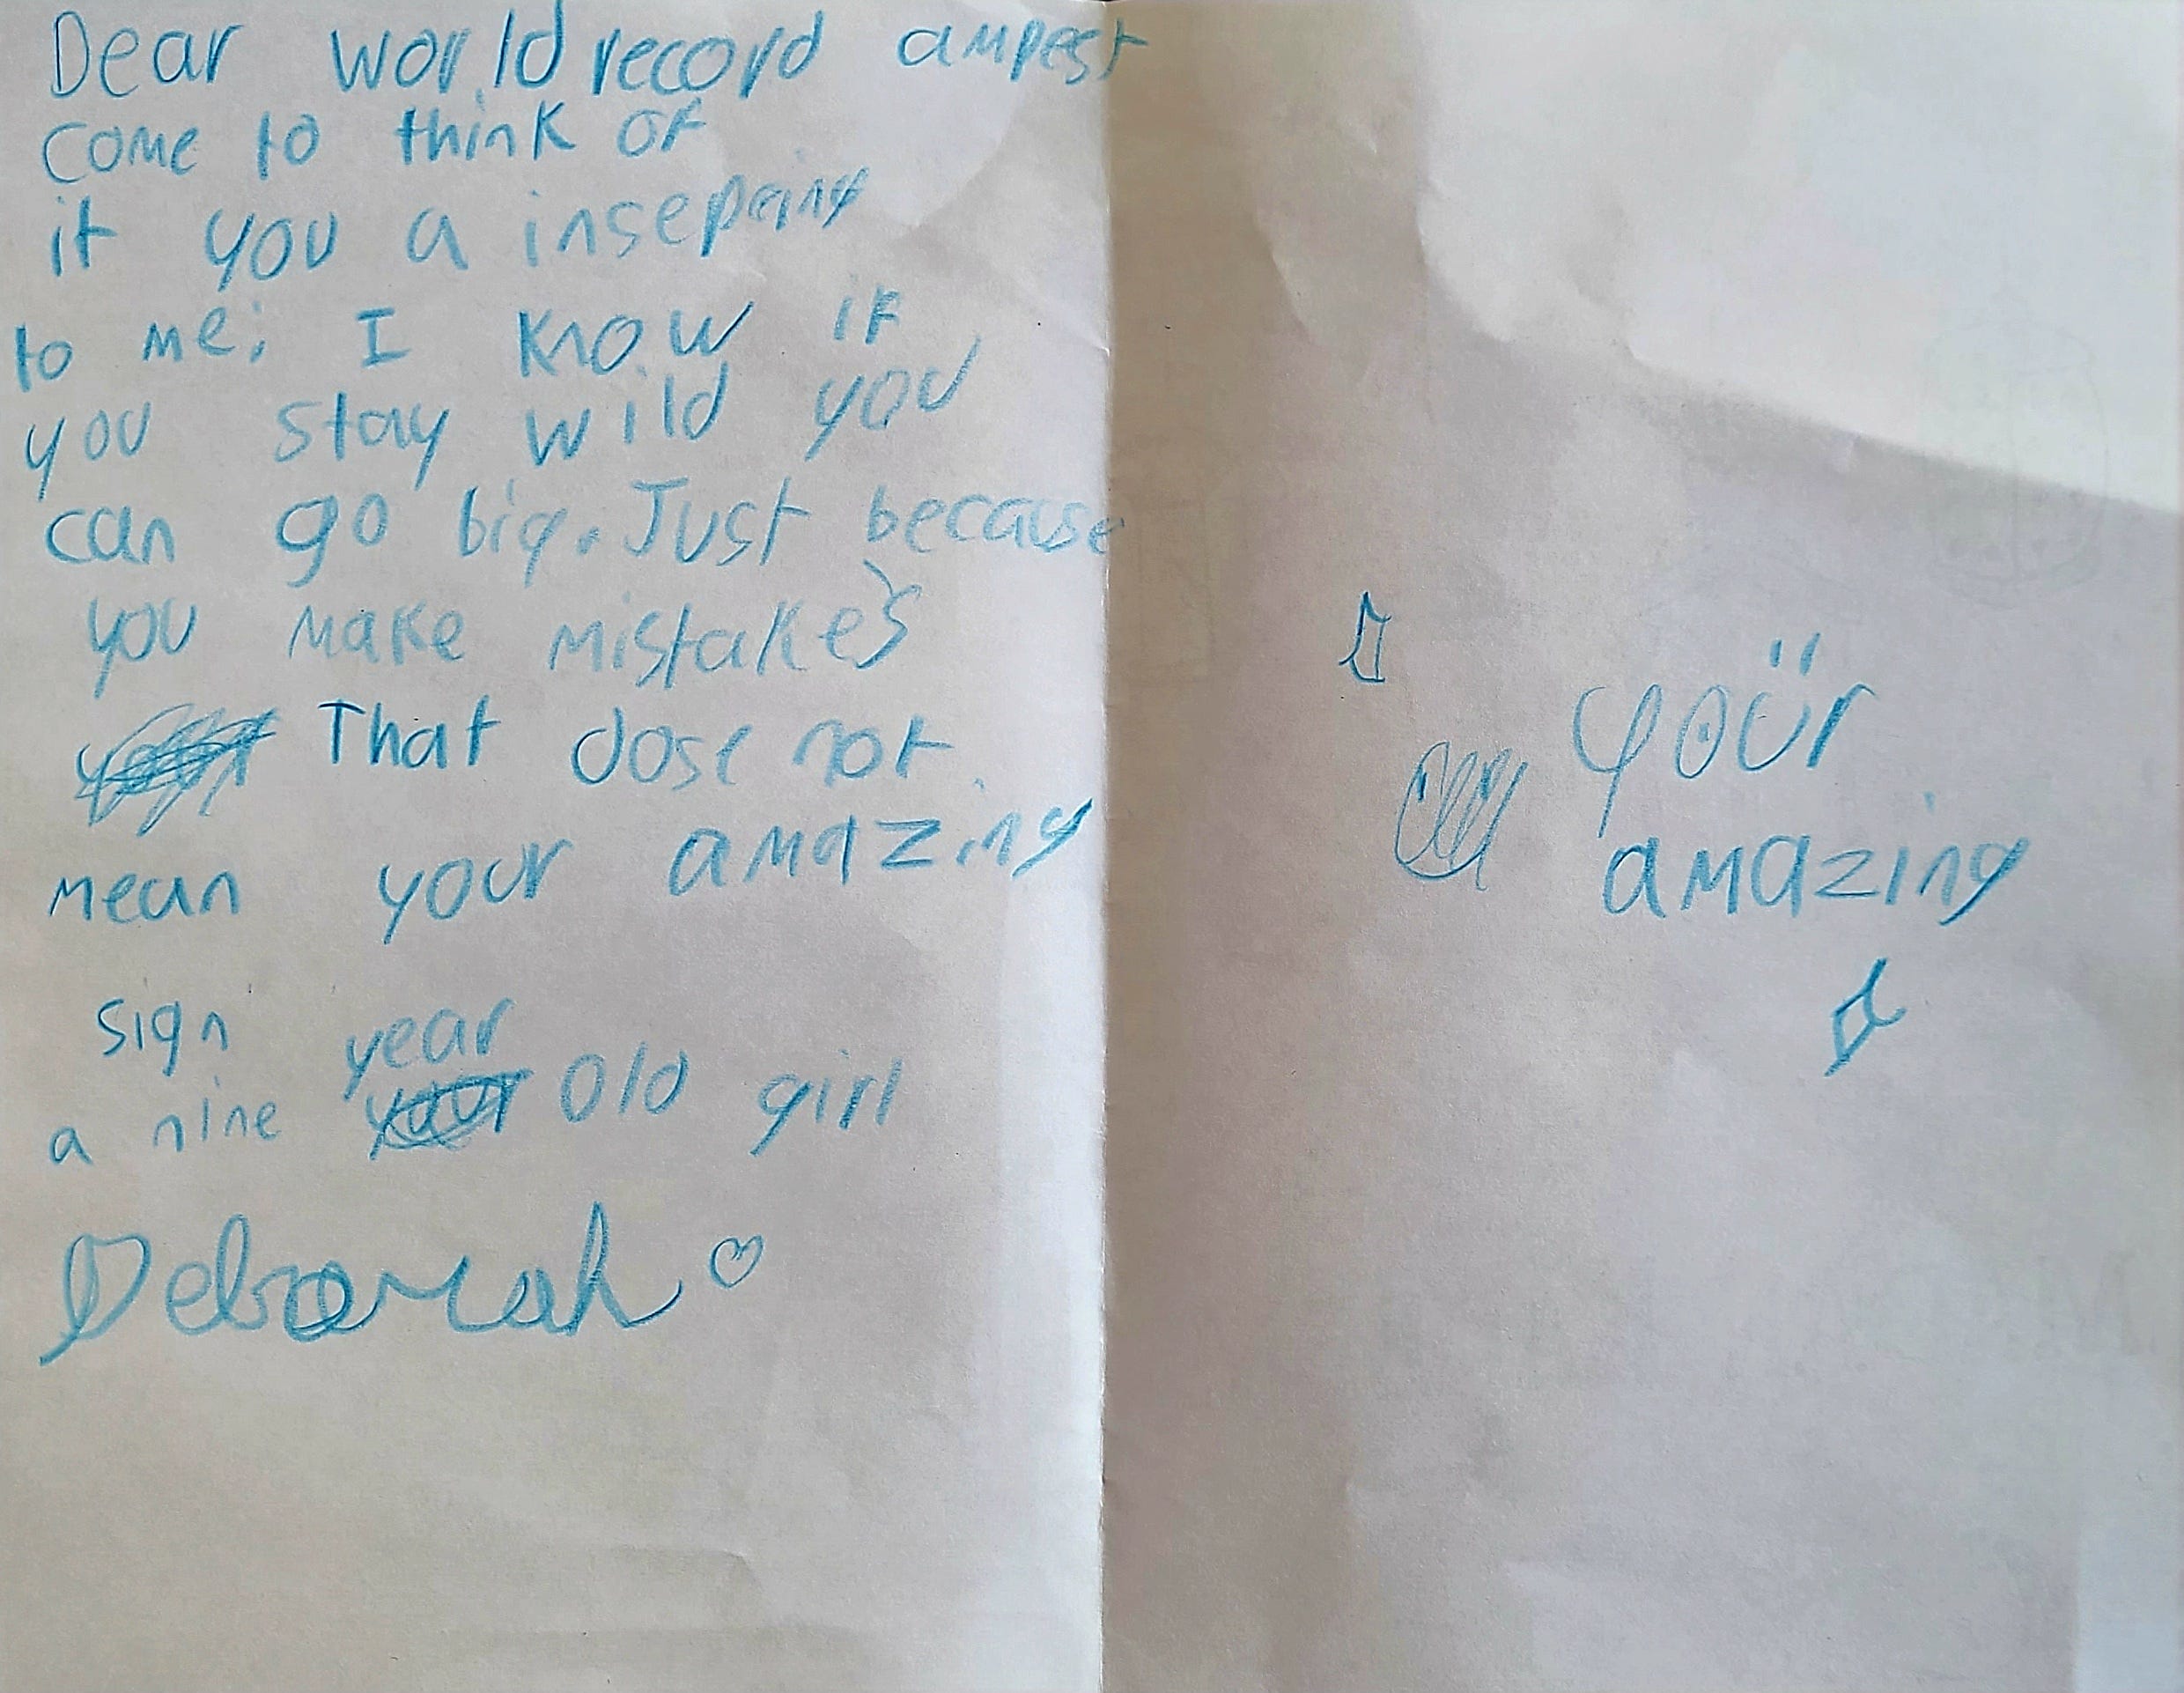 Dear world record ampest
come to think of
it you a insepeing
to me; I know if
you stay wild you
can go big. Just because
you make mistakes
That dose not
mean your amazing
sign
year
a nine old girl
Deborah
your
amazing